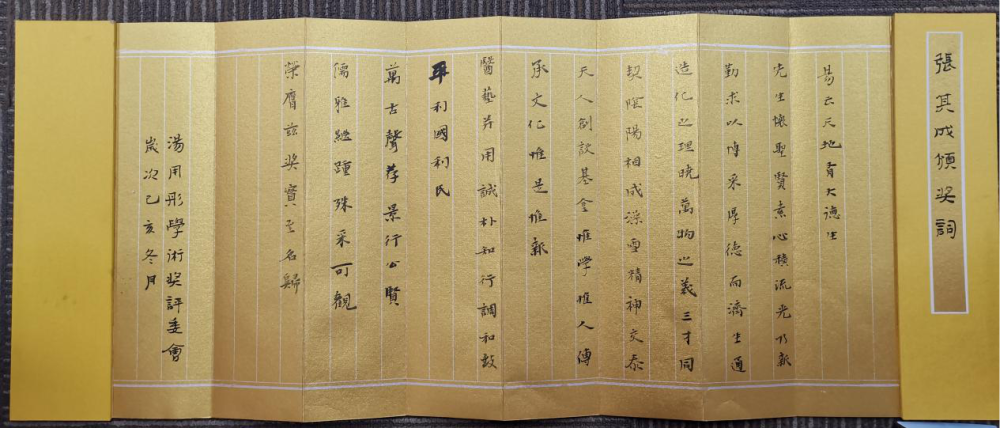 張其成頒奖詞
易云天地有大德生
先生懷聖賢素心積流光乃新
勤求以博采厚德而濟生通
造化之理曉萬物之義三才同
契陰陽相成澡雪精神交泰
天人創設基金惟學惟人傳
承文化惟是惟新
醫藝并用誠朴知行調和鼓
平利國利民
萬古聲景行公賢
儒雅繼踵殊采可觀
榮膺兹奖實至名歸
湯用彤學術奖評委會
歲次己亥冬月